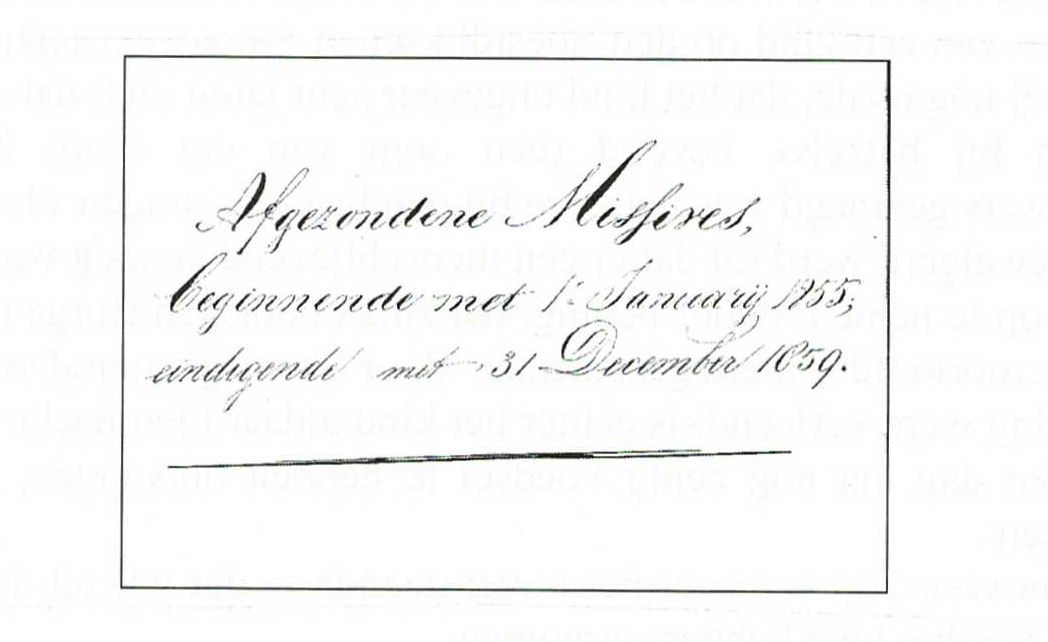 Afgezondene Missives,
beginnende met 1e Januarij 1855,
eindigende met 31 December 1859.